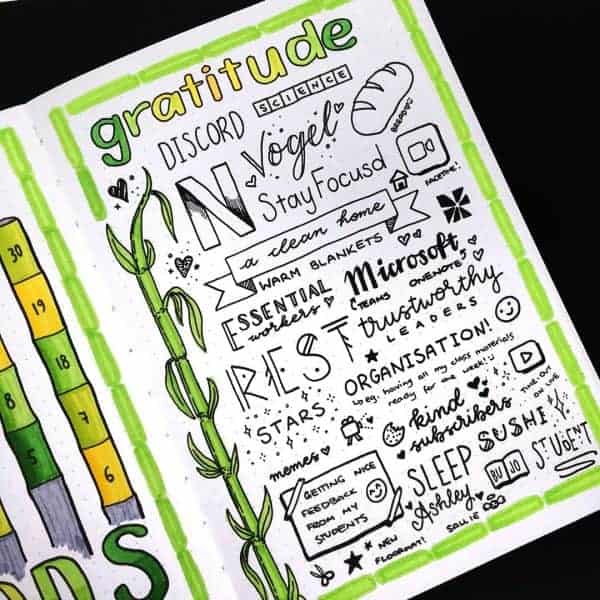 gratitude
DISCORD
SCIENCE
Vogel
BREAD
N
StayFocusd
FACETIME!
a clean home
WARM BLANKETS
ESSENTIAL
workers
Microsoft
(TEAMS ONENOTE)
REST
trustworthy
LEADERS
STARS
ORGANISATION!
eg. having all my class materials
ready for one week!
kind
subscribers
TUNE OUT
ON LIVE
SUSHI
memes
SLEEP
BUJO
STUDENT
GETTING NICE
FEEDBACK
FROM MY
STUDENTS
Ashley
SALLIE
NEW
FLOORMAT!
30
19
8
18
7
5
6
S